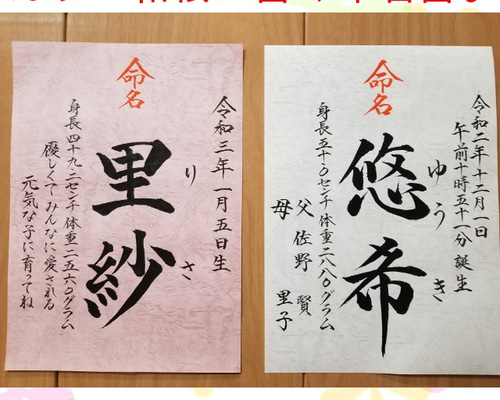 命名
令和三年一月五日生
りさ
里紗
身長四十九.二センチ 体重二五六〇グラム
優しくてみんなに愛される
元気な子に育ってね
命名
令和二年十二月一日
午前十時五十一分 誕生
ゆうき
悠希
身長五十.〇センチ 体重二八八〇グラム
父 佐野 賢
母 里子